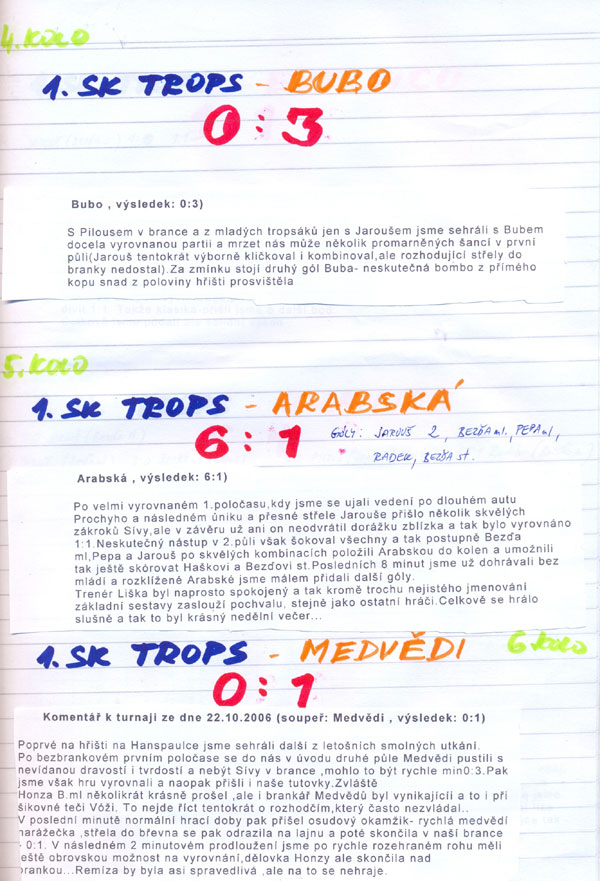 4. KOLO
1. SK TROPS - BUBO
0 : 3
Bubo , výsledek: 0:3)
S Pilousem v brance a z mladých tropsáků jen s Jaroušem jsme sehráli s Bubem
docela vyrovnanou partii a mrzet nás může několik promarněných šancí v první
půli(Jarouš tentokrát výborně kličkoval i kombinoval,ale rozhodující střely do
branky nedostal).Za zmínku stojí druhý gól Buba- neskutečná bombo z přímého
kopu snad z poloviny hřišti prosvištěla
5. KOLO
1. SK TROPS - ARABSKÁ
6 : 1
GÓLY: JAROUŠ 2, BEZĎA ml., PEPA ml,
RADEK, BEZĎA st.
Arabská , výsledek: 6:1)
Po velmi vyrovnaném 1.poločasu,kdy jsme se ujali vedení po dlouhém autu
Prochyho a následném úniku a přesné střele Jarouše přišlo několik skvělých
zákroků Sívy,ale v závěru už ani on neodvrátil dorážku zblízka a tak bylo vyrovnáno
1:1.Neskutečný nástup v 2.půli však šokoval všechny a tak postupně Bezďa
ml,Pepa a Jarouš po skvělých kombinacích položili Arabskou do kolen a umožnili
tak ještě skórovat Haškovi a Bezďovi st.Posledních 8 minut jsme už dohrávali bez
mládí a rozklížené Arabské jsme málem přidali další góly.
Trenér Liška byl naprosto spokojený a tak kromě trochu nejistého jmenování
základní sestavy zaslouží pochvalu, stejně jako ostatní hráči.Celkově se hrálo
slušně a tak to byl krásný nedělní večer...
1. SK TROPS - MEDVĚDI 6. KOLO
0 : 1
Komentář k turnaji ze dne 22.10.2006 (soupeř: Medvědi , výsledek: 0:1)
Poprvé na hřišti na Hanspaulce jsme sehráli další z letošních smolných utkání.
Po bezbrankovém prvním poločase se do nás v úvodu druhé půle Medvědi pustili s
nevídanou dravostí i tvrdostí a nebýt Sívy v brance ,mohlo to být rychle min0:3.Pak
jsme však hru vyrovnali a naopak přišli i naše tutovky.Zvláště
Honza B.ml několikrát krásně prošel ,ale i brankář Medvědů byl vynikajícíi a to i při
šikovné teči Vóži. To nejde říct tentokrát o rozhodčím,který často nezvládal..
V poslední minutě normální hrací doby pak přišel osudový okamžik- rychlá medvědí
narážečka ,střela do břevna se pak odrazila na lajnu a poté skončila v naší brance
- 0:1. V následném 2 minutovém prodloužení jsme po rychle rozehraném rohu měli
ještě obrovskou možnost na vyrovnání,dělovka Honzy ale skončila nad
brankou...Remíza by byla asi spravedlivá ,ale na to se nehraje.